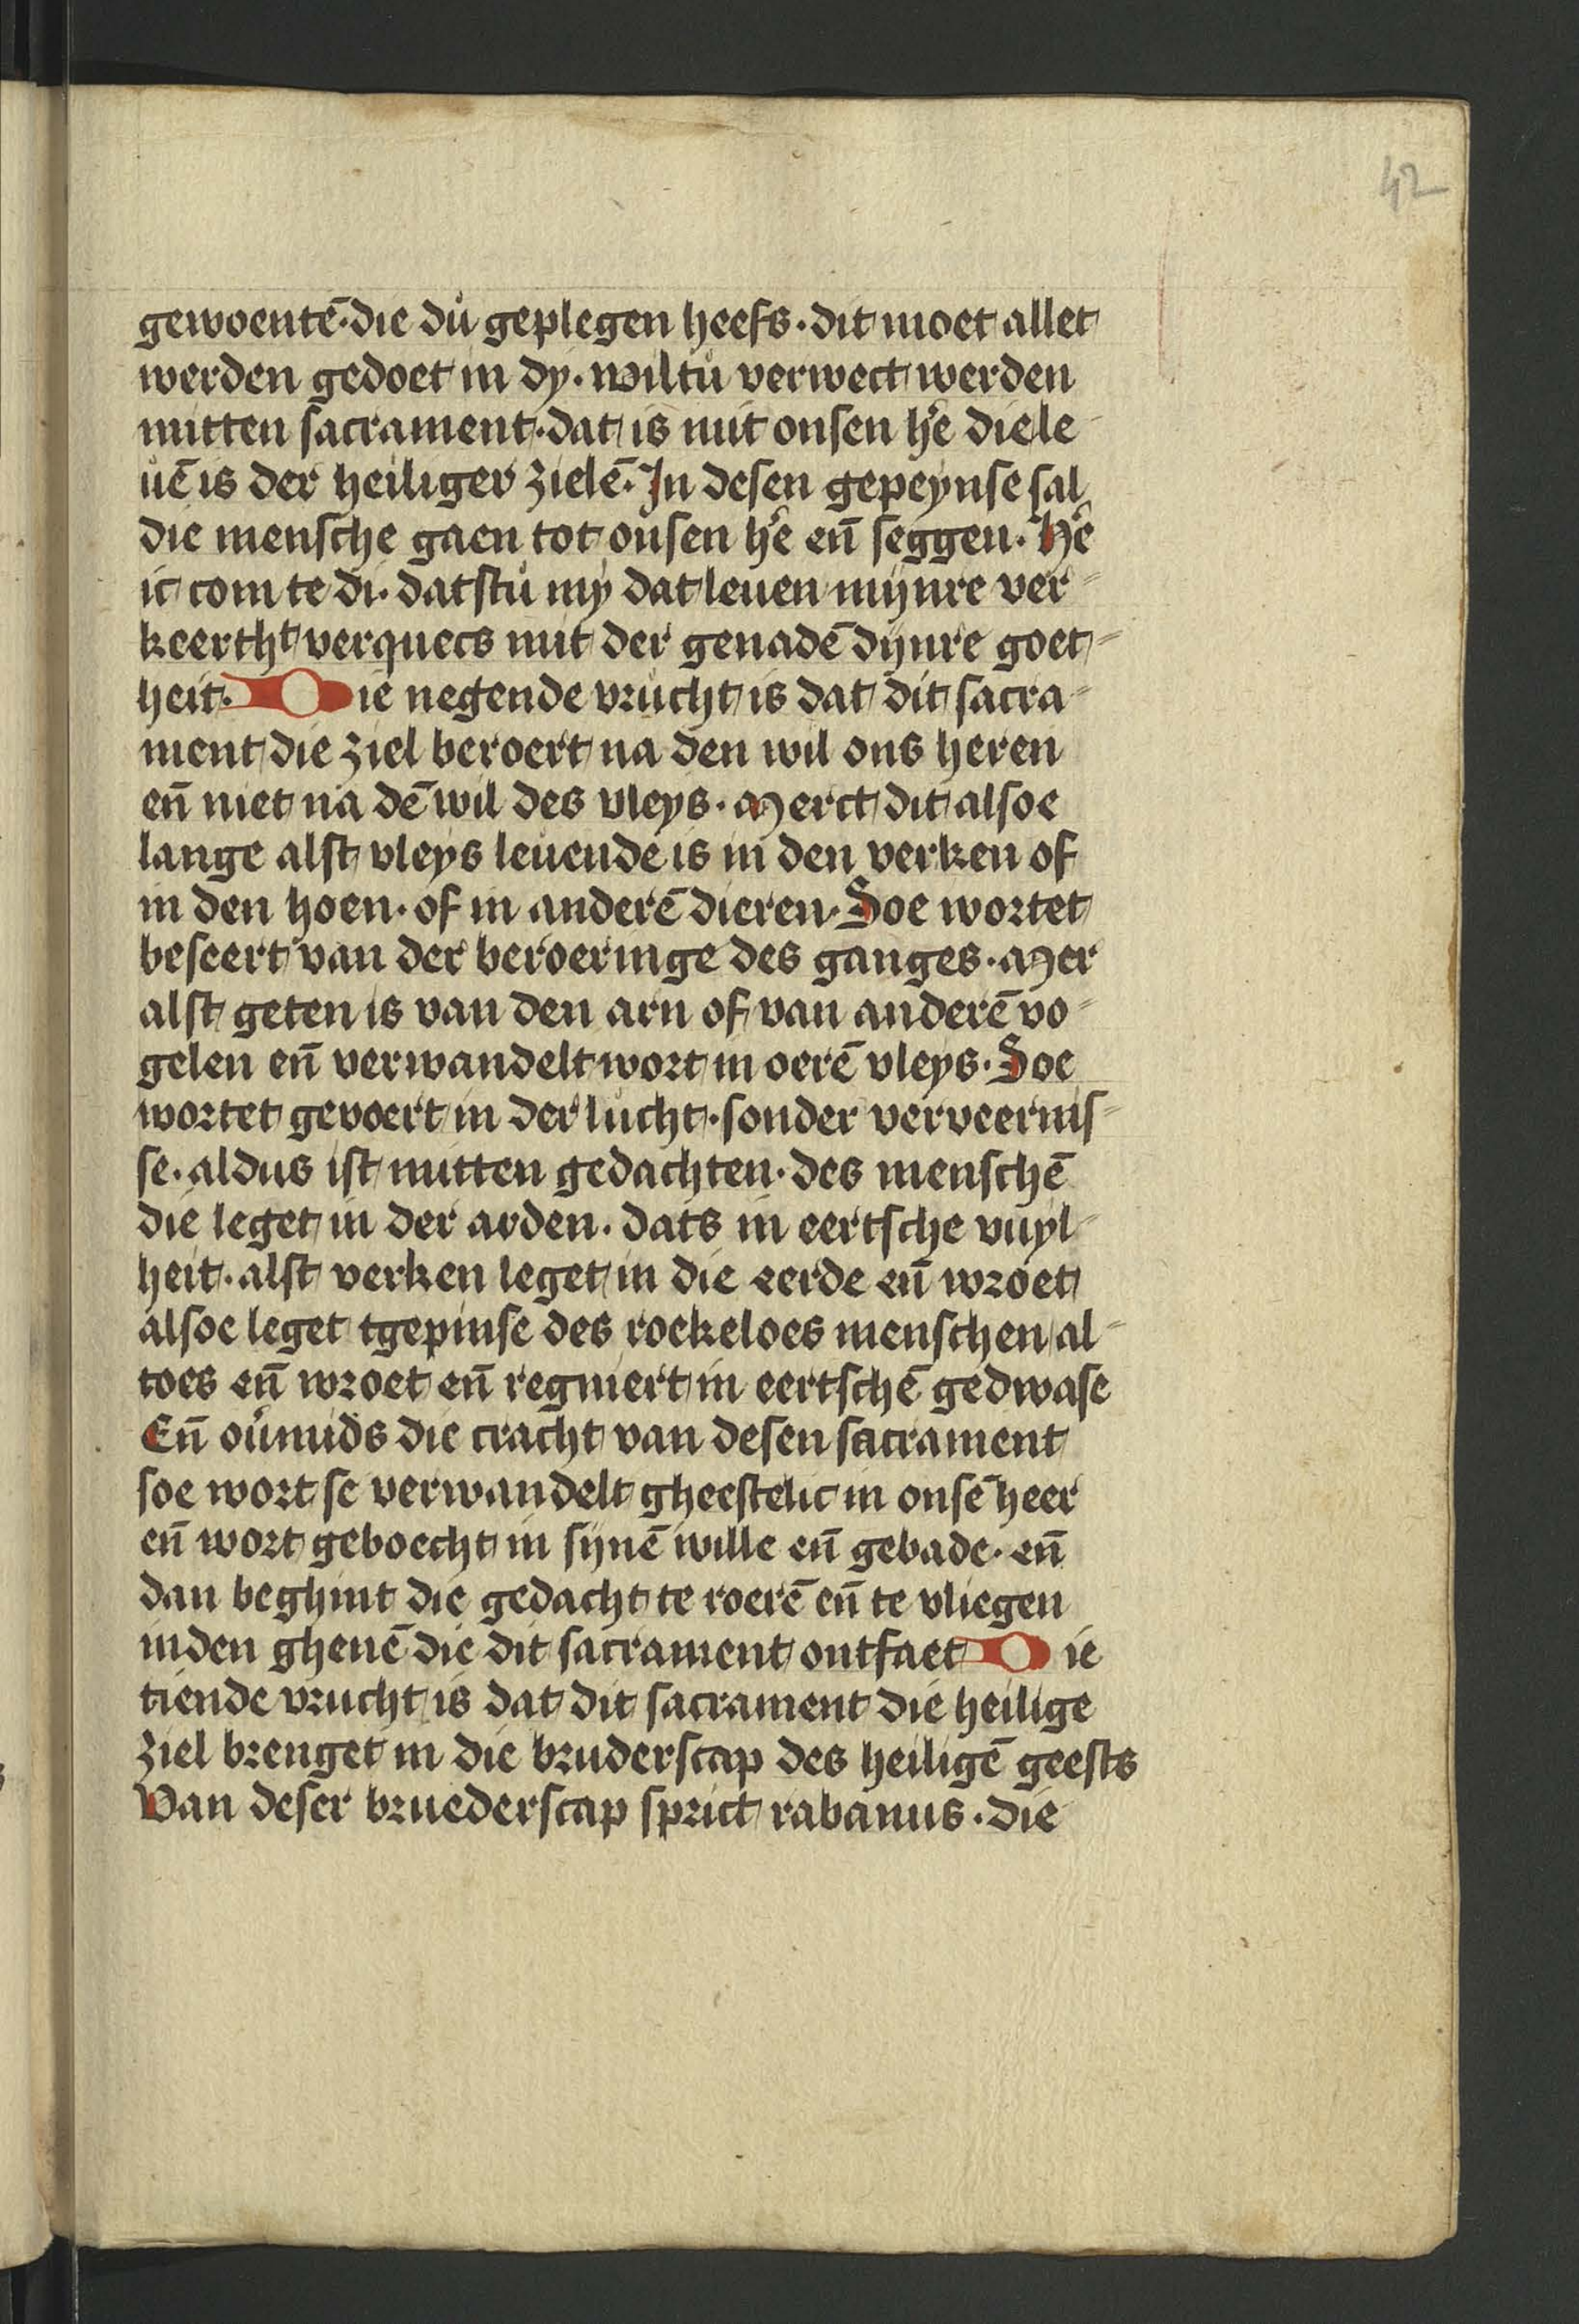 42
gewoentē·die dů geplegen heefs·dit moet allet
werden gedoet in dy·wiltů verwect werden
mitten sacrament·dat is mit onsen he᷒ die le⸗
uē is der heiliger zielē·In desen gepeynse sal
die mensche gaen tot onsen he᷒ eñ seggen·He᷒
ic com te di·datstů my dat leuen mijnre ver⸗
keertht verquecs mit der genadē dijnre goet⸗
heit·Die negende vrůcht is dat dit sacra⸗
ment die ziel beroert na den wil ons heren
eñ niet na dē wil des vleys·Merct dit alsoe
lange alst vleys leuende is in den verken of
in den hoen·of in anderē dieren·Soe wortet
beseert van der beroeringe des ganges·Mer
alst geten is van den arn of van anderē vo⸗
gelen eñ verwandelt wort in oerē vleys·Soe
wortet gevoert in der lůcht·sonder verveernis⸗
se·aldus ist mitten gedachten·des menschē
die leget in der arden·dats in eertsche vuyl⸗
heit·alst verken leget in die eerde eñ wroet
alsoe leget tgepinse des roekeloes menschen al⸗
toes eñ wroet eñ regniert in eertschē gedwase
Eñ oůmids die cracht van desen sacrament
soe wort se verwandelt gheestelic in onsē heer
eñ wort geboecht in sijnē wille eñ gebade·eñ
dan beghint die gedacht te roerē eñ te vliegen
inden ghenē die dit sacrament ontfaet Die
tiende vrucht is dat dit sacrament die heilige
ziel brenget in die bruderscap des heiligē geests
Van deser bruederscap sprict rabanus·die